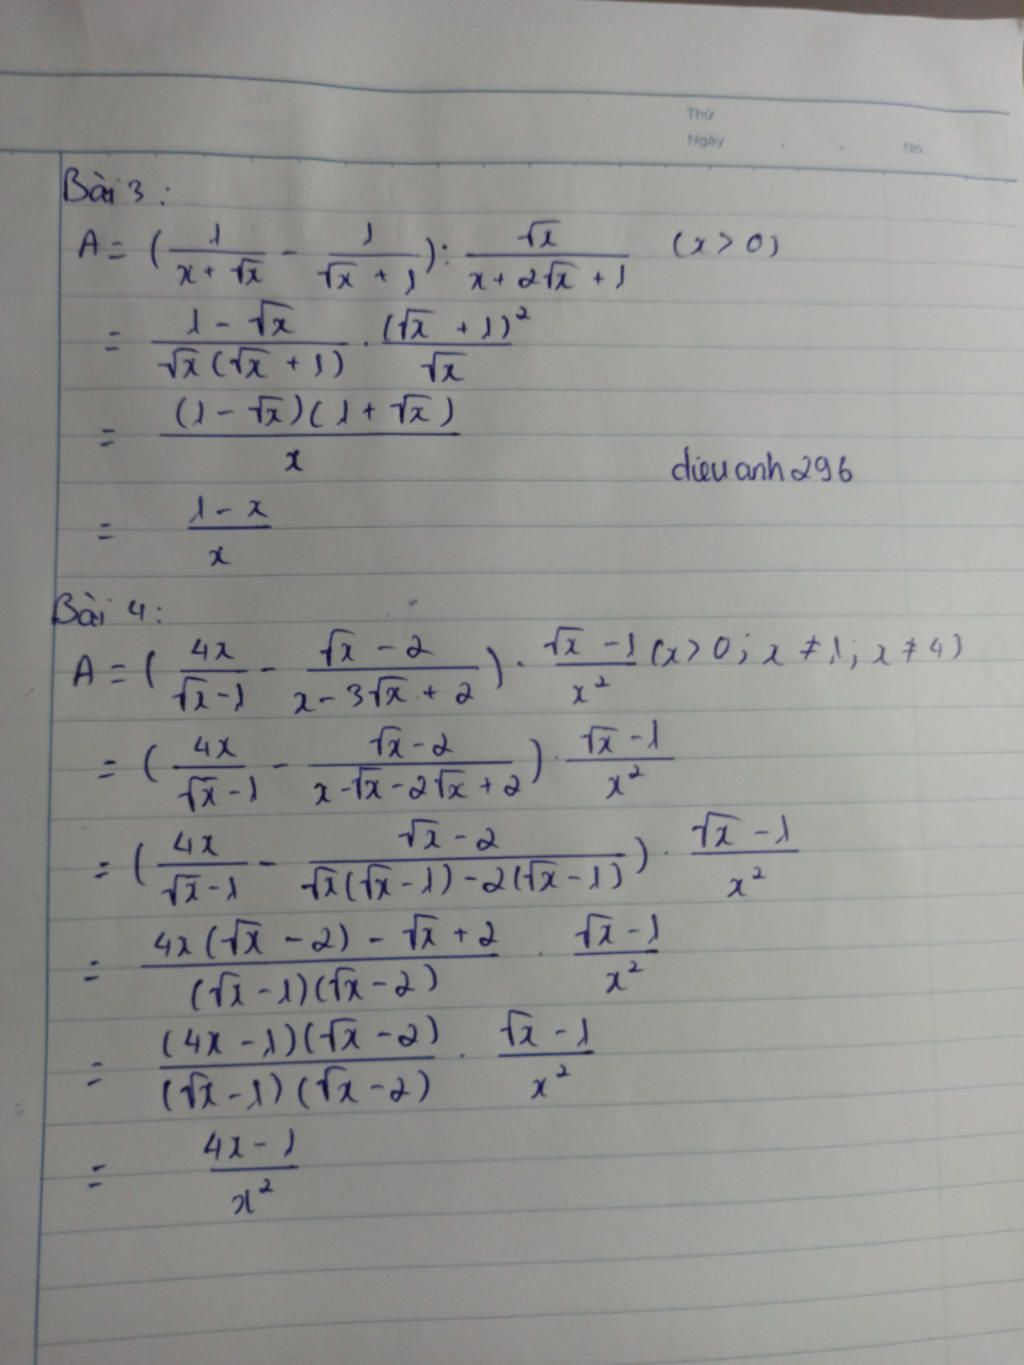 Thứ
Ngày . . No.
Bài 3:
A = (1/(x + √x) - 1/(√x + 1)) : √x/(x + 2√x + 1) (x > 0)
= (1 - √x)/(√x(√x + 1)) . (√x + 1)²/√x
= (1 - √x)(1 + √x)/x
dieuanh296
= (1 - x)/x
Bài 4:
A = (4x/(√x - 1) - (√x - 2)/(x - 3√x + 2)) . (√x - 1)/x² (x > 0; x ≠ 1; x ≠ 4)
= (4x/(√x - 1) - (√x - 2)/(x - √x - 2√x + 2)) . (√x - 1)/x²
= (4x/(√x - 1) - (√x - 2)/(√x(√x - 1) - 2(√x - 1))) . (√x - 1)/x²
= (4x(√x - 2) - √x + 2)/((√x - 1)(√x - 2)) . (√x - 1)/x²
= (4x - 1)(√x - 2)/((√x - 1)(√x - 2)) . (√x - 1)/x²
= (4x - 1)/x²